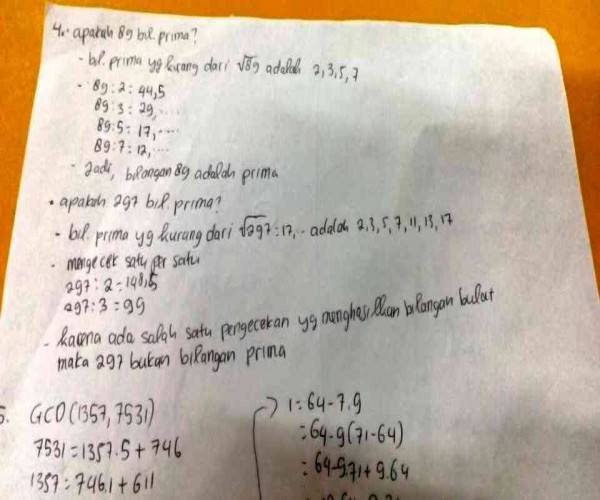 4. • apakah 89 bil prima?
- bil. prima yg kurang dari √89 adalah 2,3,5,7
- 89:2 = 44,5
89:3 = 29,....
89:5 = 17,....
89:7 = 12,....
- Jadi, bilangan 89 adalah prima
• apakah 297 bil. prima?
- bil. prima yg kurang dari √297 = 17,.. adalah 2,3,5,7,11,13,17
- mengecek satu per satu
297 : 2 = 148,5
297 : 3 = 99
- karena ada salah satu pengecekan yg menghasilkan bilangan bulat
maka 297 bukan bilangan prima
5. GCD (1357, 7531)
7531 = 1357.5 + 746
1357 = 746.1 + 611
1 = 64 - 7.9
= 64 - 9(71-64)
= 64 - 9.71 + 9.64